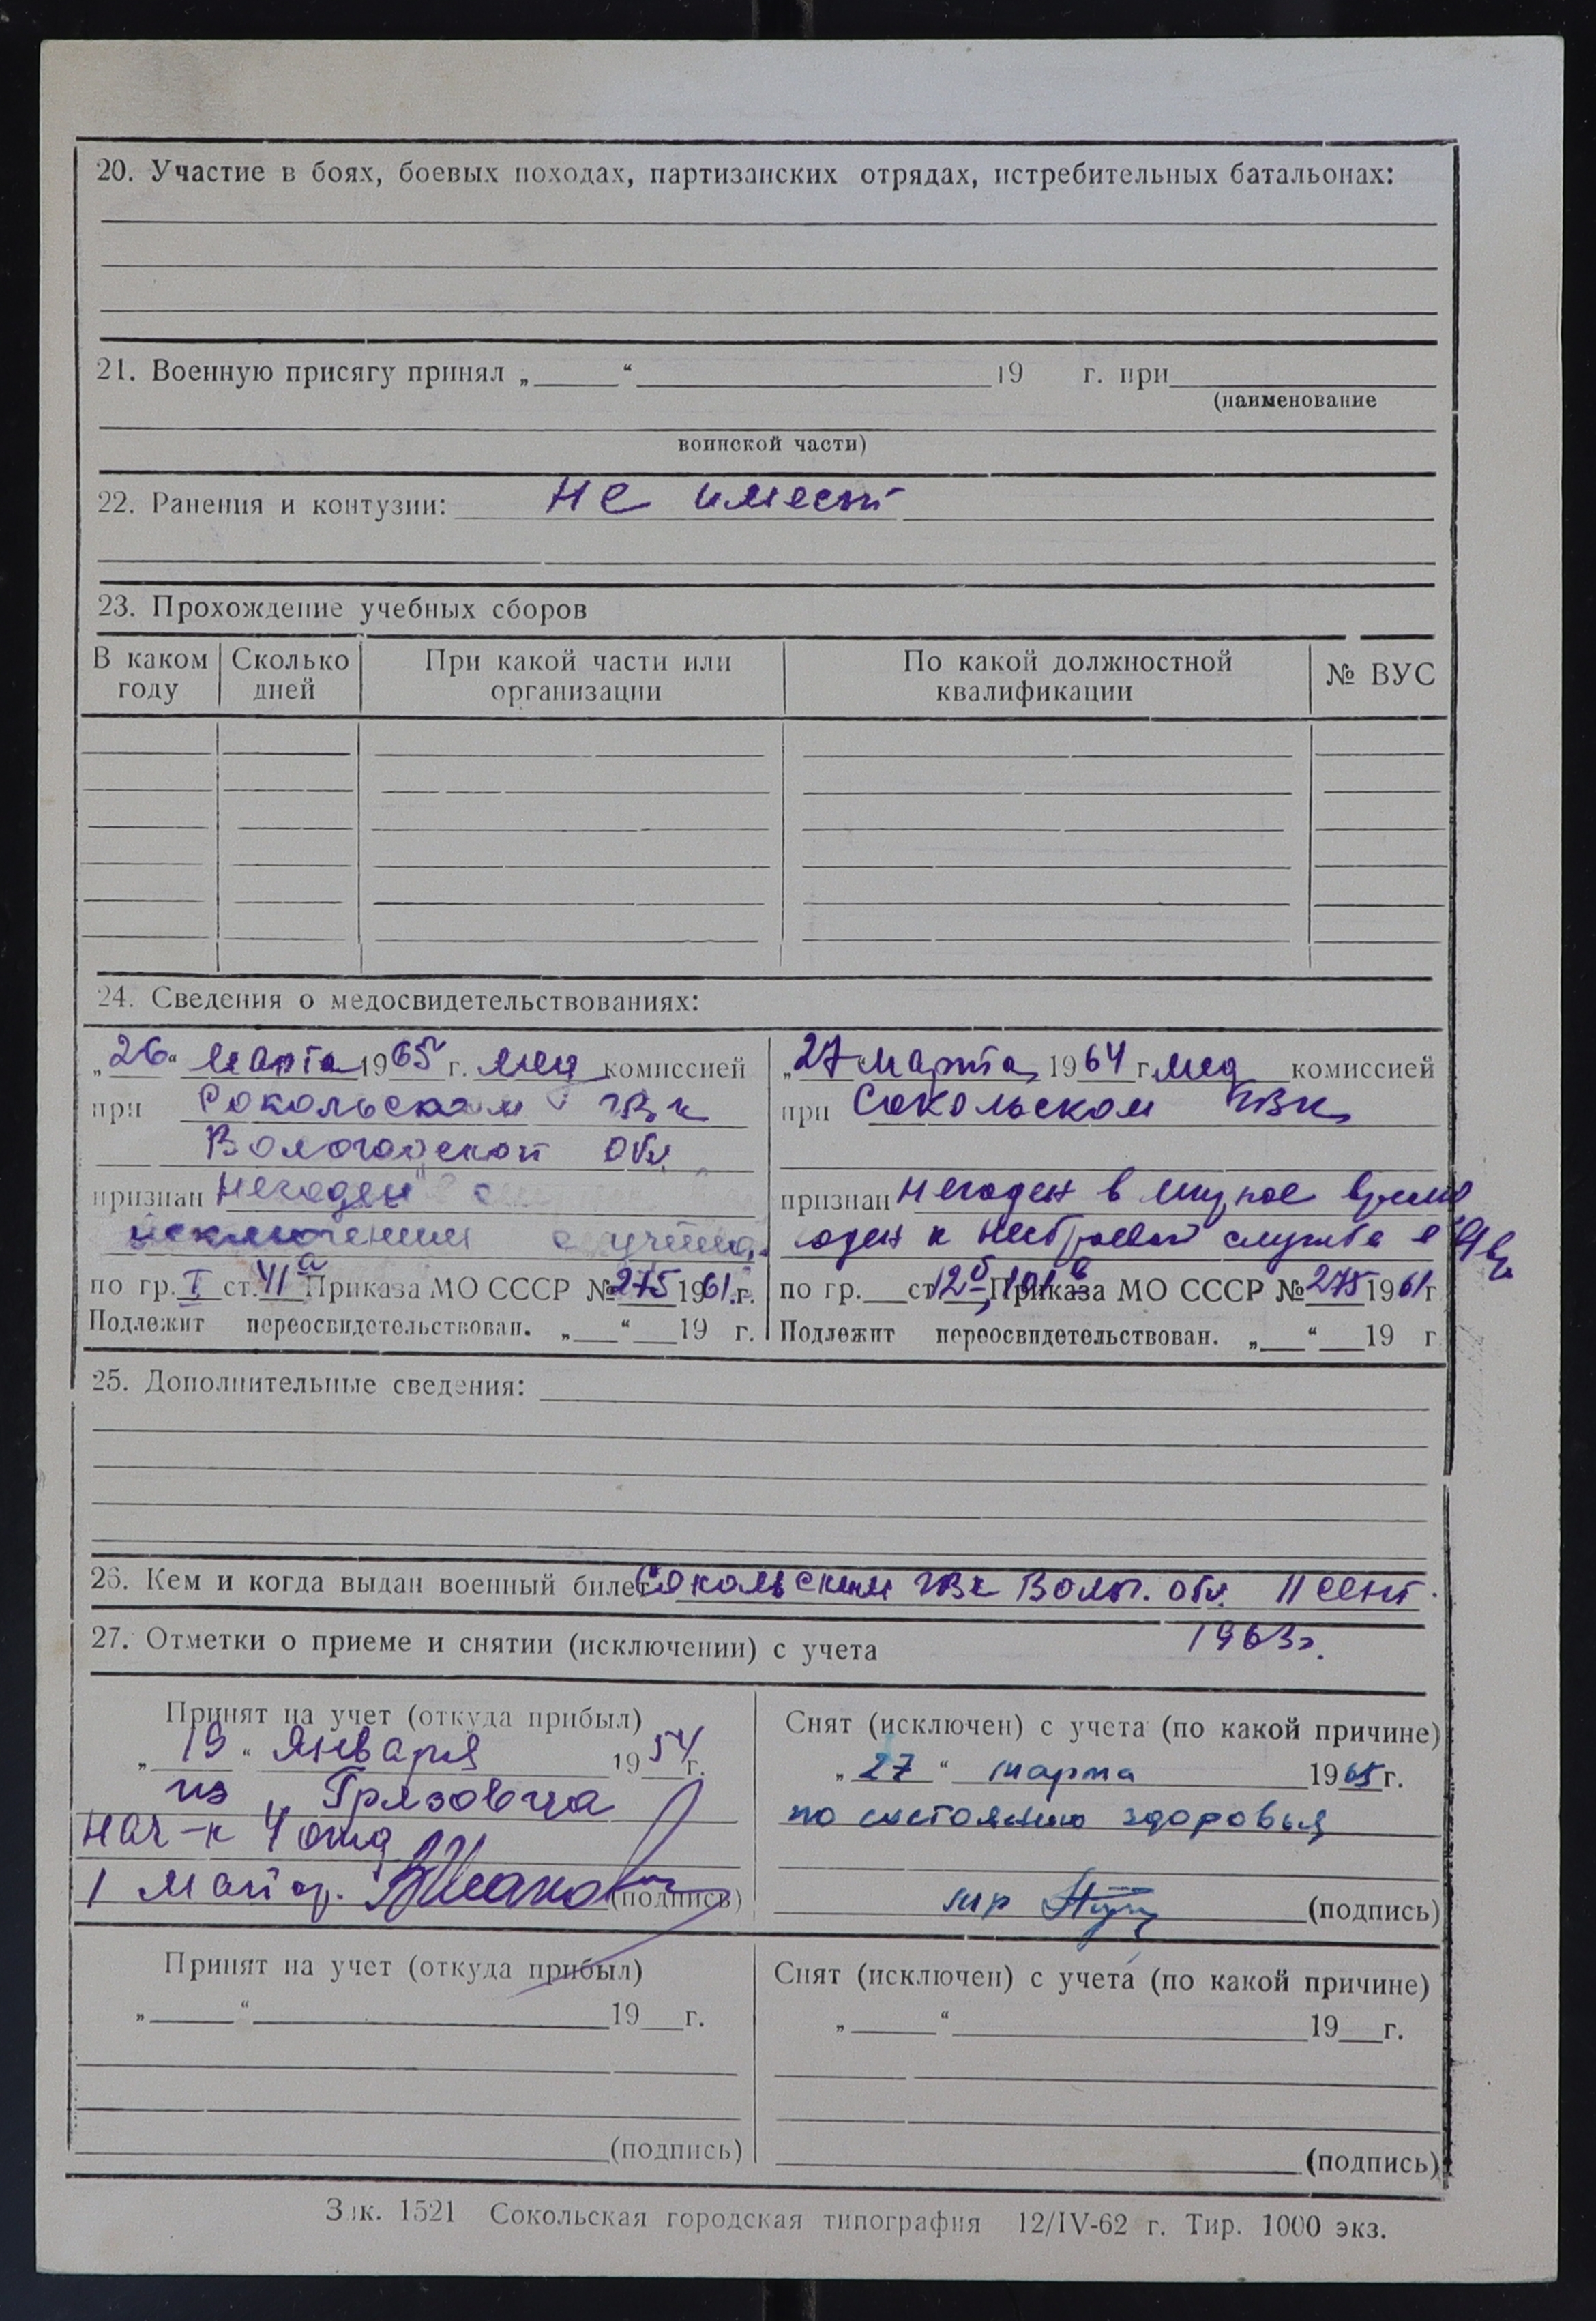 20. Участие в боях, боевых походах, партизанских отрядах, истребительных батальонах:
21. Военную присягу принял „ “ 19 г. при
(наименование
воинской части)
22. Ранения и контузии: не имеет
23. Прохождение учебных сборов
В каком году | Сколько дней | При какой части или организации | По какой должностной квалификации | № ВУС
24. Сведения о медосвидетельствованиях:
„26“ марта 1965 г. мед комиссией
при Сокольском ГВК
Вологодской обл.
признан негоден с
исключением с учета.
по гр. I ст. VIа Приказа МО СССР № 275 1961 г.
Подлежит переосвидетельствован. „ “ 19 г.
„27“ марта 1964 г. мед комиссией
при Сокольском ГВК
признан негоден в мирное время
годен к нестроевой службе в
по гр. ст. 12б, 101в Приказа МО СССР № 275 1961 г
Подлежит переосвидетельствован. „ “ 19 г
25. Дополнительные сведения:
26. Кем и когда выдан военный билет Сокольским ГВК Волог. обл. 11 сент.
1963г.
27. Отметки о приеме и снятии (исключении) с учета
Принят на учет (откуда прибыл)
„19“ января 1954 г.
из Грязовца
нач-к 4 отд
майор. (подпись)
Снят (исключен) с учета (по какой причине)
„27“ марта 1965 г.
по состоянию здоровья
м-р (подпись)
Принят на учет (откуда прибыл)
„ “ 19 г.
(подпись)
Снят (исключен) с учета (по какой причине)
„ “ 19 г.
(подпись)
Зак. 1521 Сокольская городская типография 12/IV-62 г. Тир. 1000 экз.